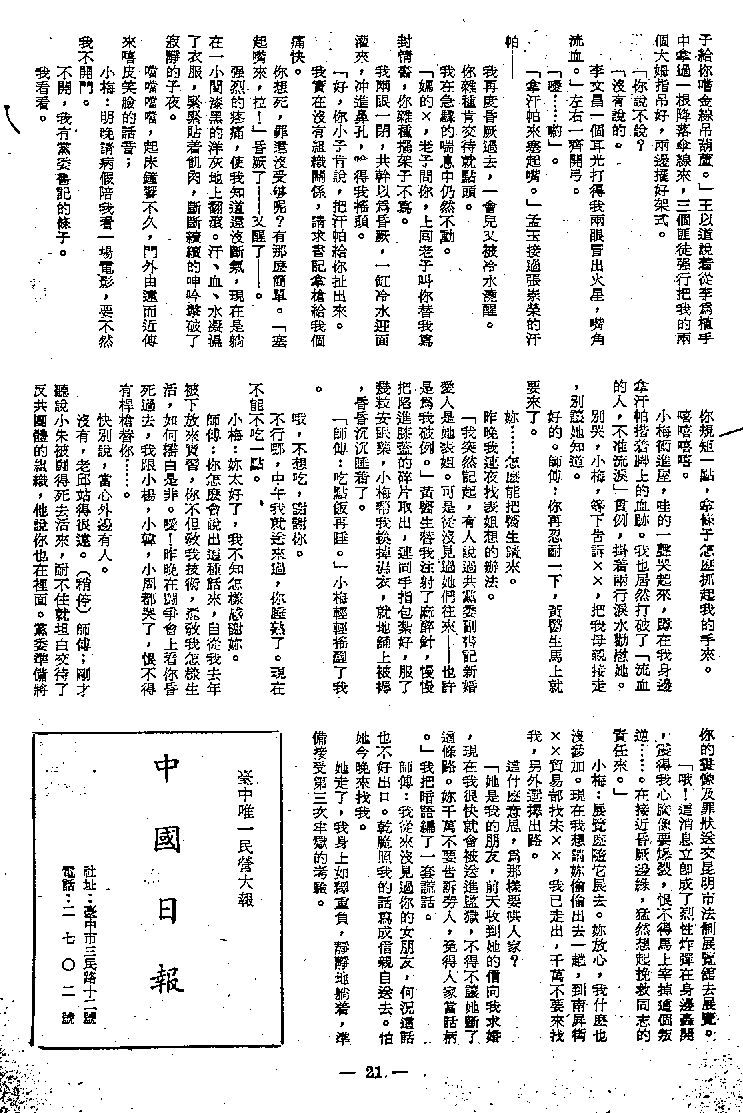 子給你嚐金線吊葫蘆。」王以道說着從李爲植手
中拿過一根降落傘線來,三個匪徒强行把我的兩
個大姆指吊好,兩邊擺好架式。
「你說不說?
「沒有說的。
李文昌一個耳光打得我兩眼冒出火星,嘴角
流血。」左右一齊開弓。
「噯……喲」。
「拿汗帕來塞起嘴。」孟玉接過張崇榮的汗
帕——
我再度昏厥過去,一會兒又被冷水澆醒。
你雜種肯交待就點頭。
我在急驟的喘息中仍然不動。
「媽的×,老子問你,上囘老子叫你替我寫
封情書,你雜種擺架子不寫。
我兩眼一閉,共幹以爲昏厥,一缸冷水迎面
灌來,冲進鼻孔,嗆得我搖頭。
「好,你小子肯說,把汗帕給你扯出來。
我實在沒有組織關係,請求書記拿槍給我個
痛快。
你想死,罪還沒受够呢?有那麼簡單。「塞
起嘴來,拉!」昏厥了——又醒了——。
强烈的疼痛,使我知道還沒斷氣,現在是躺
在一小間漆黑的洋灰地上翻滾。汗、血、水凝濕
了衣服,緊緊貼着肌肉,斷斷續續的呻吟擊破了
寂靜的子夜。
噹噹噹,起床鐘響不久,門外由遠而近傳
來嘻皮笑臉的話音;
小梅:明晚請病假陪我看一場電影,要不然
我不開門。
不開,我有黨委書記的條子。
我看看。
你規矩一點,拿條子怎麼抓起我的手來。
嘻嘻嘻嘻。
小梅衝進屋,哇的一聲哭起來,蹲在我身邊
拿汗帕揩着脚上的血跡。我也居然打破了「流血
的人,不准流淚」貫例,掛着兩行淚水勸慰她。
別哭,小梅,等下告訴××,把我母親接走
,別讓她知道。
好的。師傅:你再忍耐一下,黃醫生馬上就
要來了。
妳……怎麼能把醫生請來。
昨晚我連夜找表姐想的辦法。
「我突然記起,有人說過共黨委副書記新婚
愛人是她表姐。可是從沒見過她們往來——也許
是爲我破例。」黃醫生替我注射了麻醉針,慢慢
把陷進膝盖的碎片取出,連同手指包紮好,服了
幾粒安眠藥,小梅幫我換掉濕衣,就地舖上被褥
,昏昏沉沉睡着了。
「師傅:吃點飯再睡。」小梅輕輕搖醒了我
。
哦,不想吃,謝謝你。
不行耶,中午我就送來過,你睡熟了。現在
不能不吃一點。
小梅:妳太好了,我不知怎樣感謝妳。
師傅:你怎麼會說出這種話來,自從我去年
被下放來實習,你不但敎我技術,還敎我怎樣生
活,如何潛白是非。噯!昨晚在鬪爭會上看你昏
死過去,我跟小楊,小韓,小周都哭了,恨不得
有桿槍替你……
快別說,當心外邊有人。
沒有,老邱站得很遠。(稍停)師傅;剛才
聽說小朱被鬪得死去活來,耐不住就坦白交待了
反共團體的組織,他說你也在裡面。黨委準備將
你的塑像及罪狀送交昆明市法制展覽館去展覽。
「哦!這消息立即成了烈性炸彈在身邊轟開
,震得我心胸像要爆裂,恨不得馬上宰掉這個叛
逆……。在接近昏厥邊緣,猛然想起挽救同志的
責任來。」
小梅:展覽館隨它展去。妳放心,我什麼也
沒參加。現在我想請妳偷偷出去一趟,到南屏街
××貿易部找朱××,我已走出,千萬不要來找
我,另外選擇出路。
這什麼意思,爲那樣要哄人家?
「她是我的朋友,前天收到她的信向我求婚
,現在我很快就會被送進監獄,不得不讓她斷了
這條路。妳千萬不要告訴旁人,免得人家當話柄
。」我把暗語編了一套謊話。
師傅:我從來沒見過你的女朋友,何況這話
也不好出口。乾脆照我的話寫成信親自送去。怕
她今晚來找我。
她走了,我身上如釋重負,靜靜地躺着,準
備接受第三次牢獄的考驗。
臺中唯一民營大報
中國日報
社址:臺中市三民路十二號
電話:二七〇二號
— 21 —